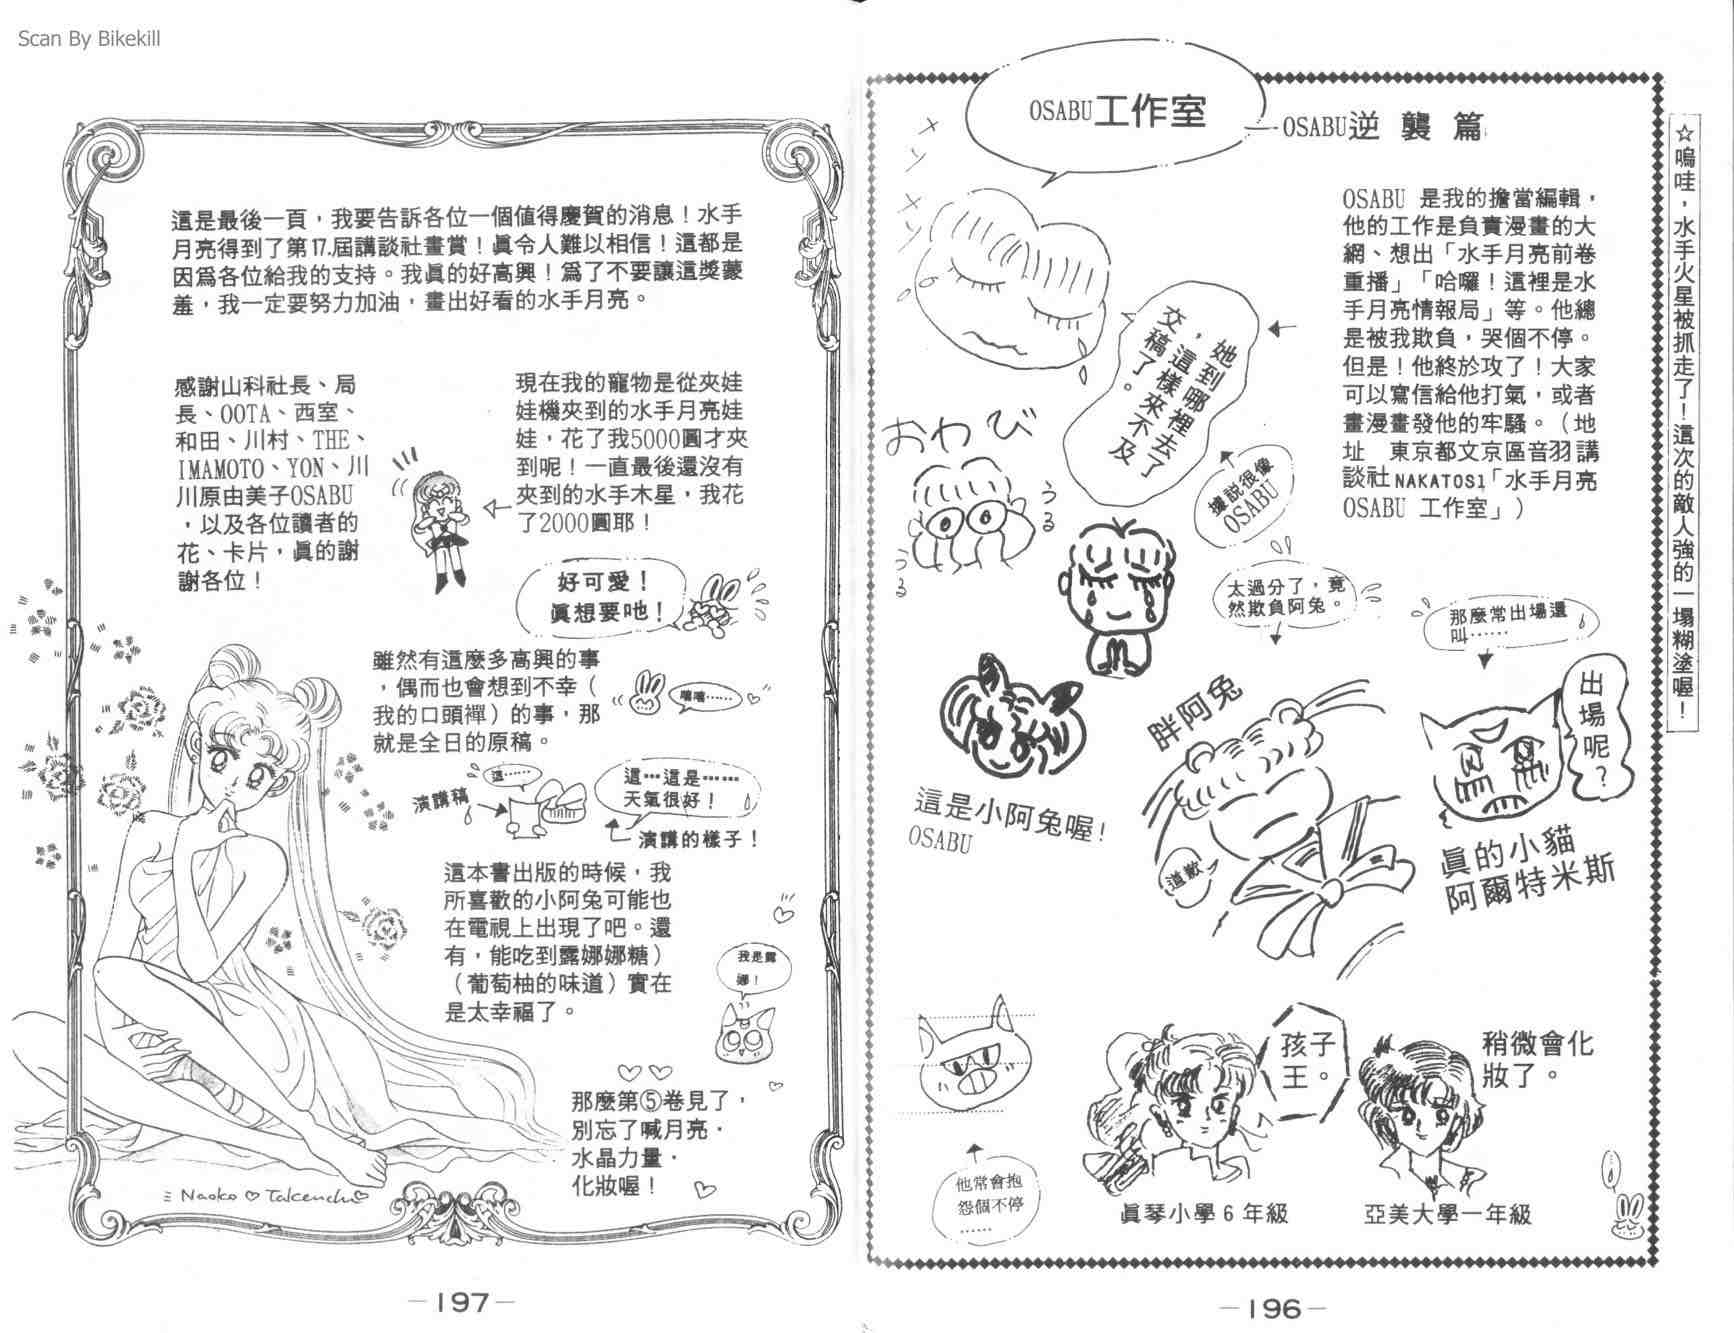 Scan By Bikekill
☆嗚哇，水手火星被抓走了！這次的敵人強的一塌糊塗喔！
OSABU工作室
OSABU逆襲篇
OSABU 是我的擔當編輯，
他的工作是負責漫畫的大
網、想出「水手月亮前卷
重播」「哈囉！這裡是水
手月亮情報局」等。他總
是被我欺負，哭個不停。
但是！他終於攻了！大家
可以寫信給他打氣，或者
畫漫畫發他的牢騷。（地
址　東京都文京區音羽講
談社NAKATOSI「水手月亮
OSABU 工作室」）
她到哪裡去了
，這樣來不及
交稿了。
おわび
うる
うる
據説很像
OSABU
太過分了，竟
然欺負阿兔。
那麼常出場還
叫……
出場呢？
眞的小貓
阿爾特米斯
胖阿兔
道歉
這是小阿兔喔！
OSABU
他常會抱
怨個不停
……
孩子
王。
眞琴小學6年級
稍微會化
妝了。
亞美大學一年級
—196—
這是最後一頁，我要告訴各位一個值得慶賀的消息！水手
月亮得到了第17.屆講談社畫賞！眞令人難以相信！這都是
因爲各位給我的支持。我眞的好高興！爲了不要讓這獎蒙
羞，我一定要努力加油，畫出好看的水手月亮。
現在我的寵物是從夾娃
娃機夾到的水手月亮娃
娃，花了我5000圓才夾
到呢！一直最後還沒有
夾到的水手木星，我花
了2000圓耶！
感謝山科社長、局
長、OOTA、西室、
和田、川村、THE、
IMAMOTO、YON、川
川原由美子OSABU
，以及各位讀者的
花、卡片，眞的謝
謝各位！
好可愛！
眞想要吔！
雖然有這麼多高興的事
，偶而也會想到不幸（
我的口頭禪）的事，那
就是全日的原稿。
嘻嘻……
這……
演講稿
這…這是……
天氣很好！
演講的樣子！
這本書出版的時候，我
所喜歡的小阿兔可能也
在電視上出現了吧。還
有，能吃到露娜娜糖）
（葡萄柚的味道）實在
是太幸福了。
我是露
娜！
那麼第⑤卷見了，
別忘了喊月亮．
水晶力量．
化妝喔！
Naoko♡Takeuchi♡
—197—